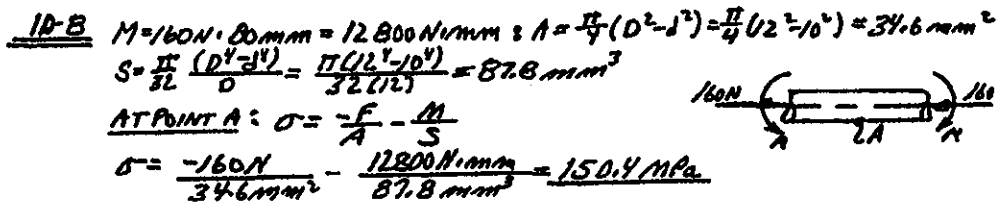 10-8 M=160N·80mm = 12800N·mm : A = π/4 (D²-d²) = π/4 (12²-10²) = 34.6mm²
S = π/32 (D⁴-d⁴)/D = π(12⁴-10⁴)/32(12) = 87.8 mm³
160N 160
AT POINT A : σ = -F/A - M/S
A A M
σ = -160N/34.6mm² - 12800N·mm/87.8mm³ = 150.4 MPa